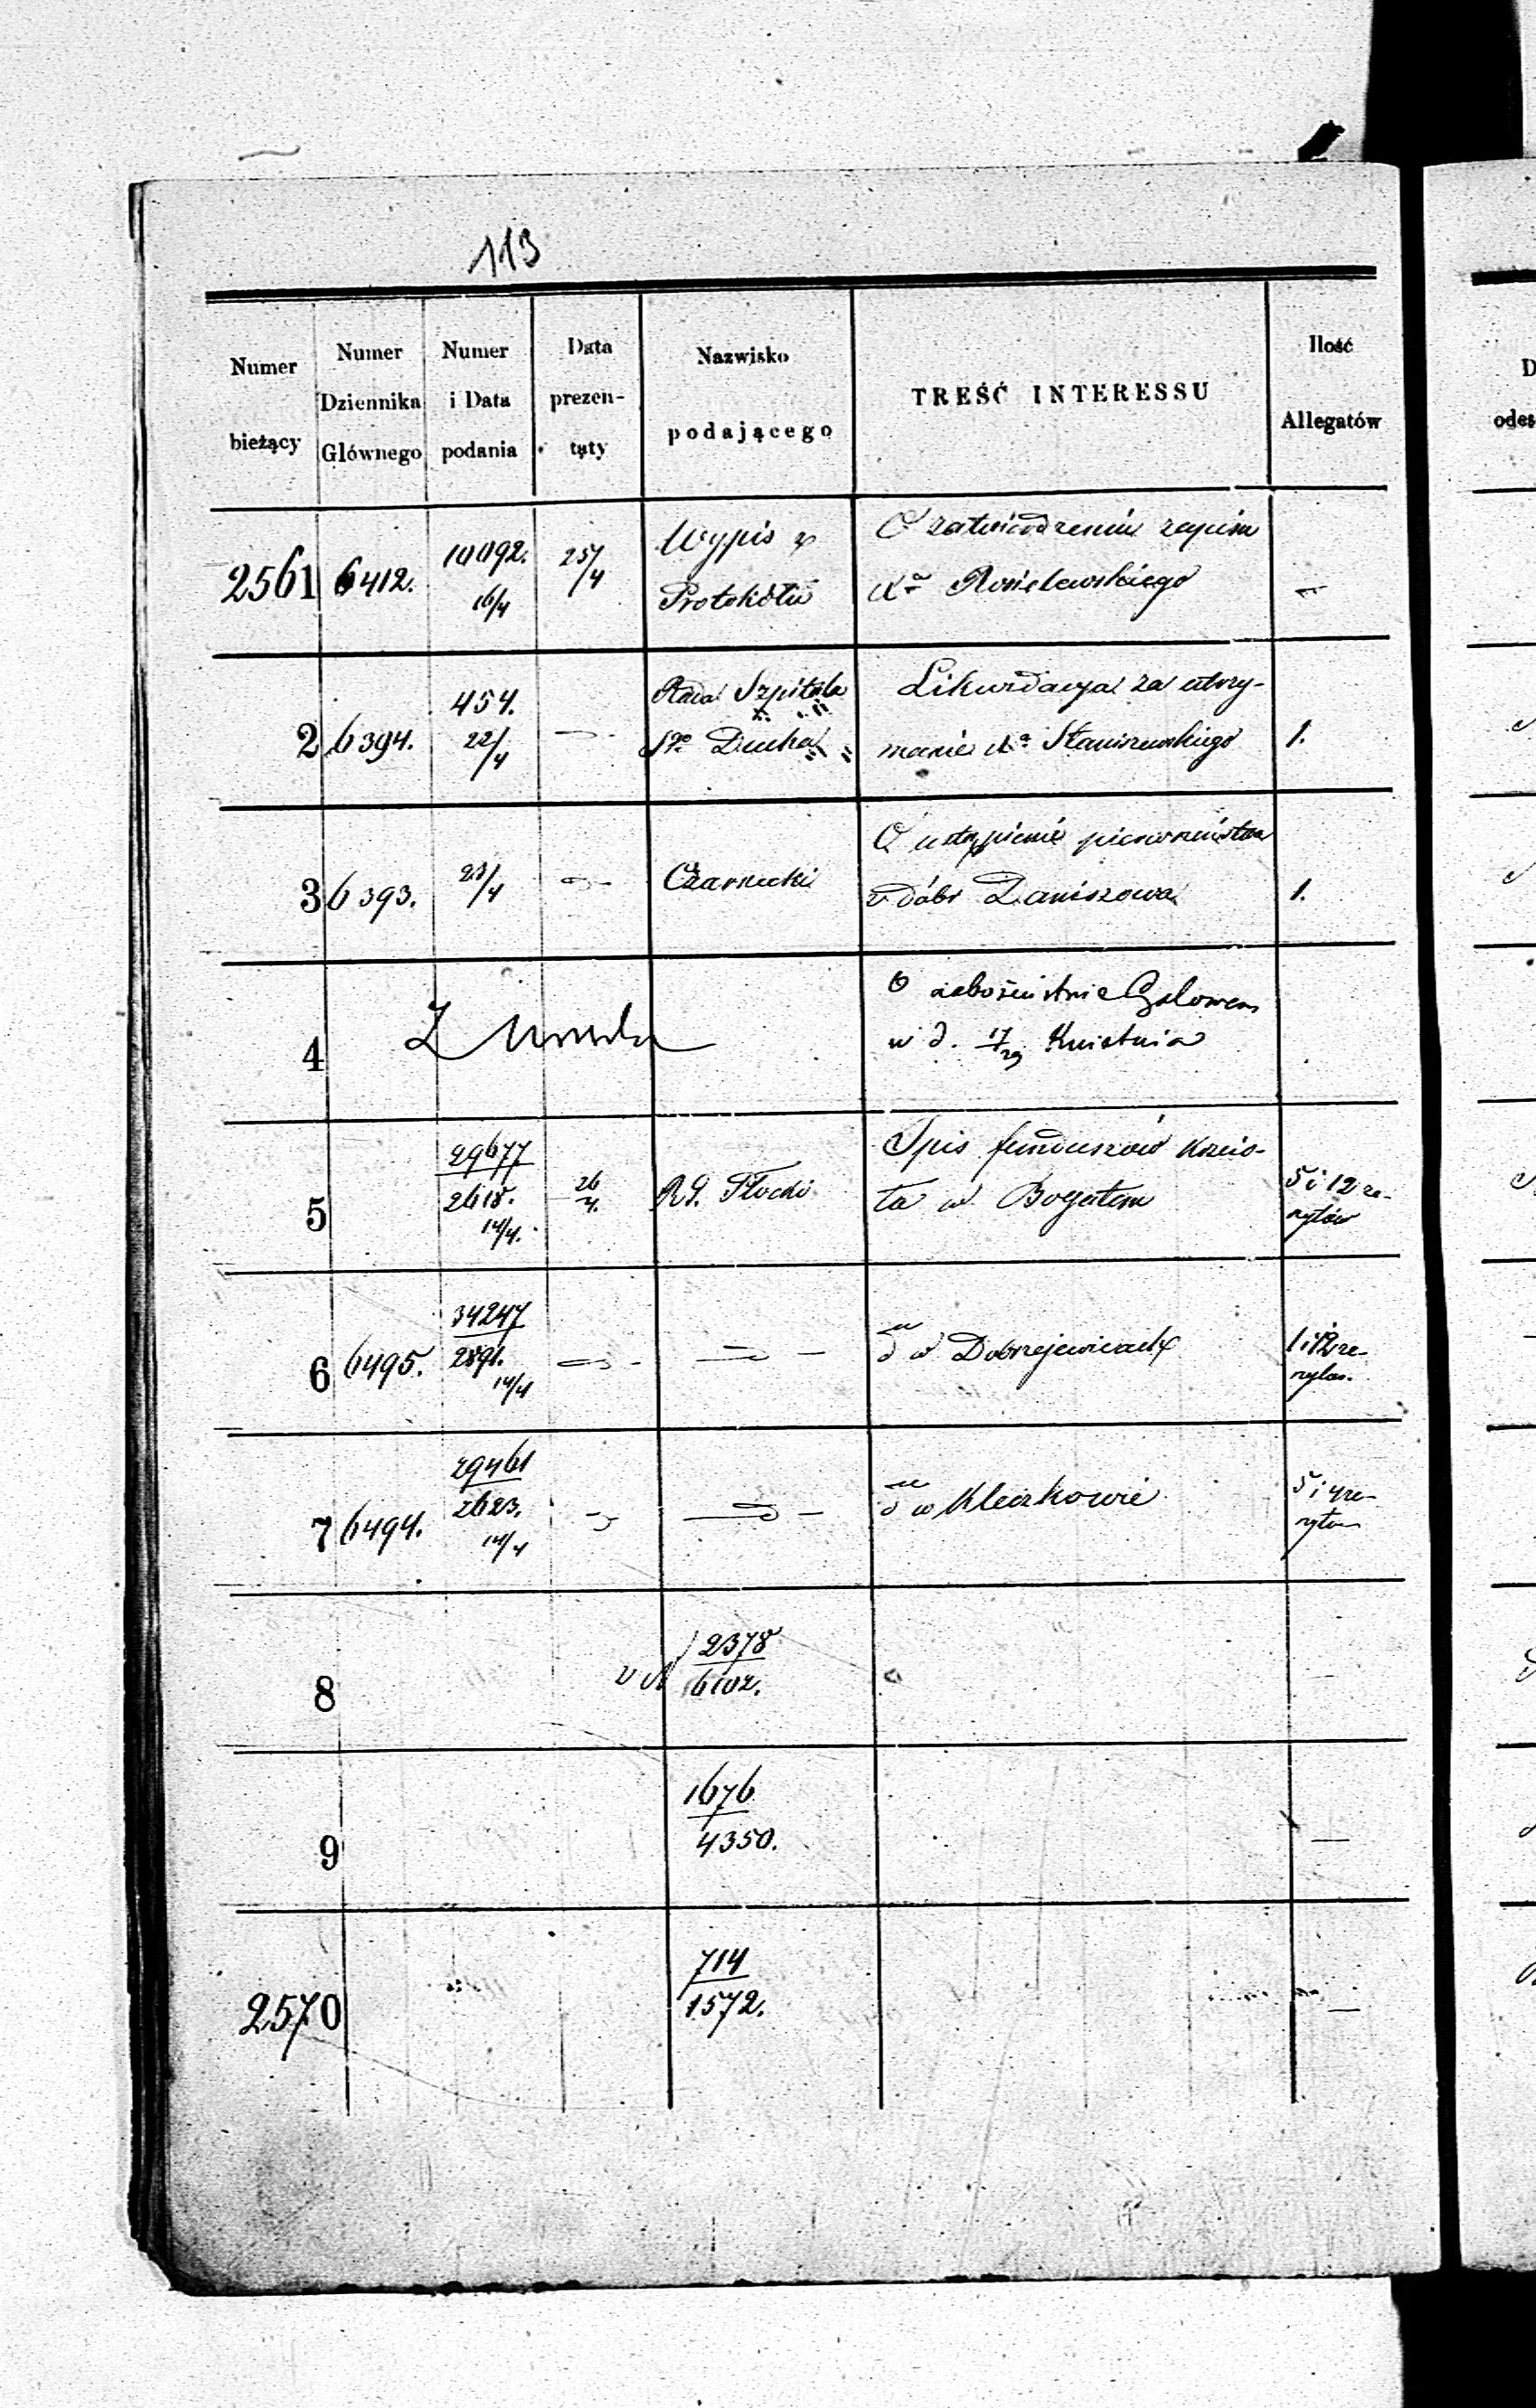 113
Numer bieżący
Numer Dziennika Głównego
Numer i Data podania
Data prezentaty
Nazwisko podającego
TREŚĆ INTERESSU
Ilość Allegatów
2561 6412. 10092. 16/4 25/4
Wypis z
Protokółu
O zatwierdzeniu zapisu
2 6394. 454. 22/4 —
Rada Szpitala
Sgo Ducha
Likwidacya za utrzy-
manie Xa Staniszewskiego
1.
3 6393. 23/4
Czarnecki
O ustąpienie pierwszeństwa
z dóbr Daniszowa
1.
4
Z Urzędu
O nabożeństwie Galowem
w d. 17/29 Kwietnia
5 29677
2618.
14/4.
26/4.
RG. Płocki
Spis funduszów Kościo-
ła w Bogatem
5 i 12 ze-
szytów
6 6495. 34247
2891.
14/4
— " —
— " —
do w Dobrzejewicach
1 i 12 ze-
szytów.
7 6494. 29461
2623.
14/4
— " —
— " —
do w Kleczkowie
5 i 4 ze-
szytów
8
2378
6102.
9
1676
4350.
—
2570
714
1572.
—